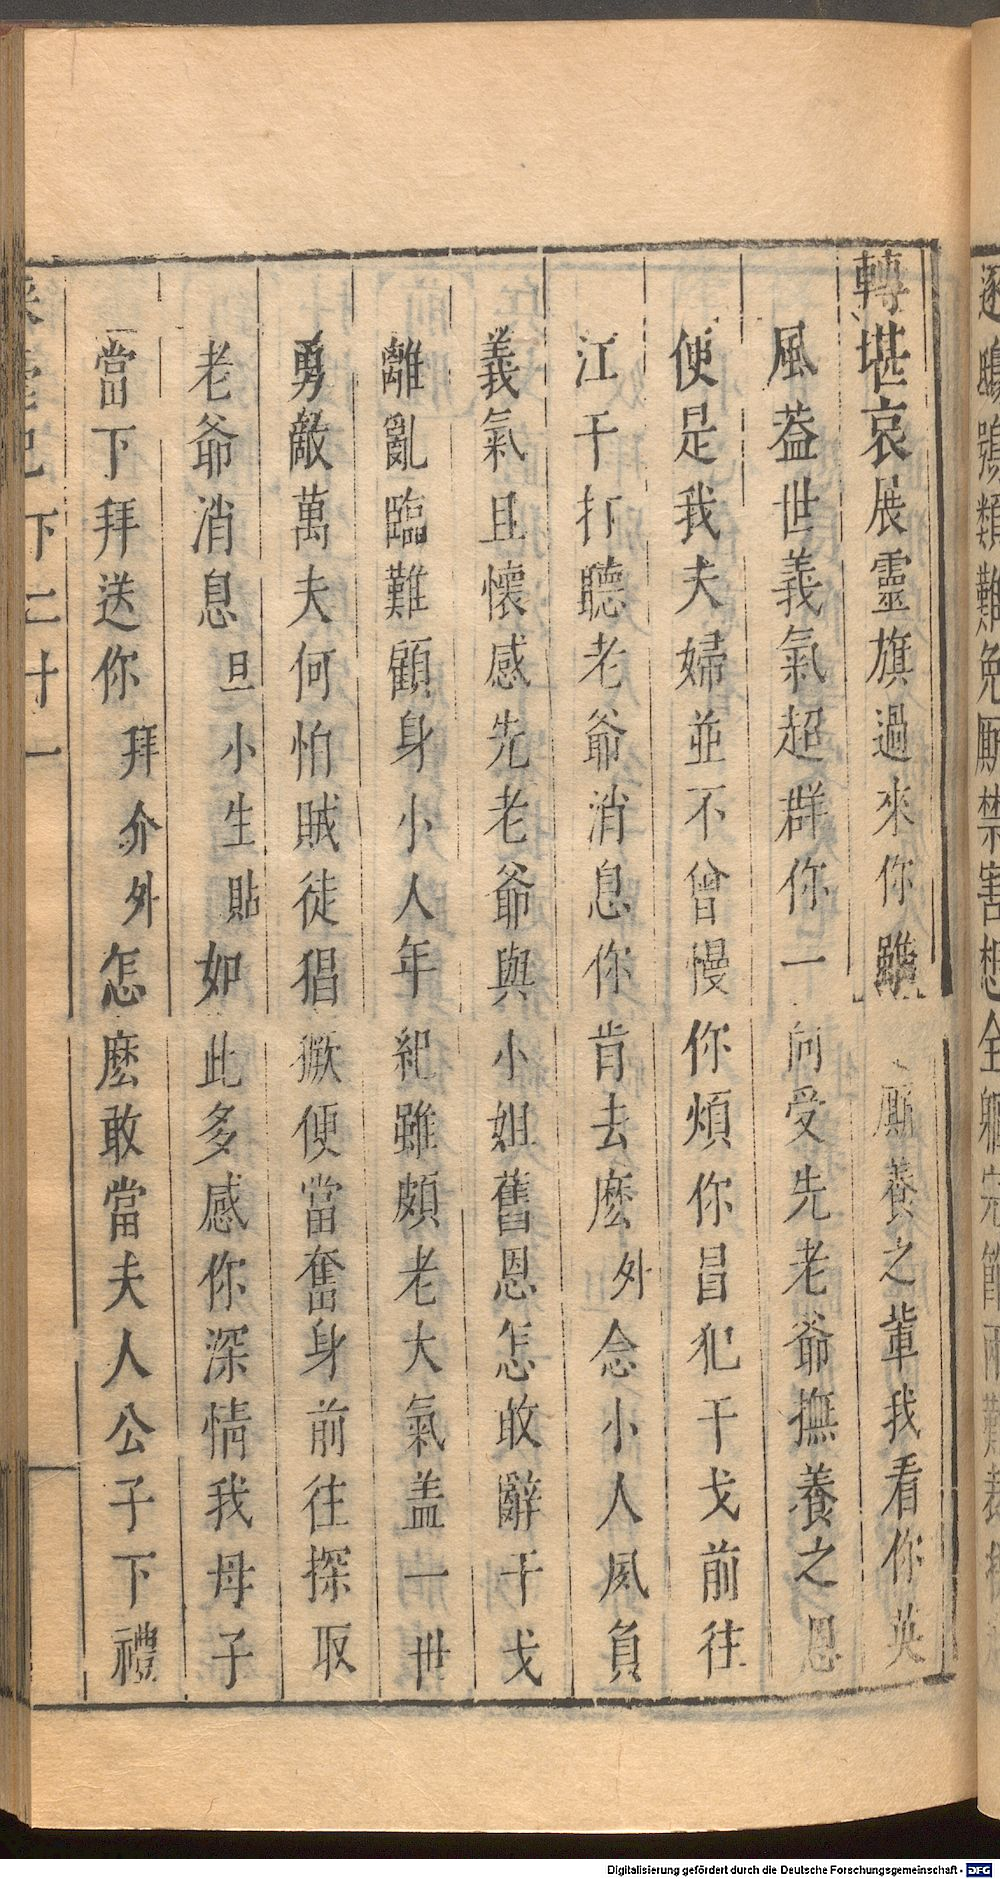 轉堪哀展靈旗過來你雖厮養之輩我看你英
風葢世義氣超群你一向受先老爺撫養之恩
便是我夫婦並不曾慢你煩你冒犯干戈前往
江干打聽老爺消息你肯去麽外念小人夙負
義氣且懷感先老爺與小姐舊恩怎敢辭干戈
離亂臨難顧身小人年紀雖頗老大氣盖一世
勇敵萬夫何怕賊徒猖獗便當奮身前往探取
老爺消息旦小生貼如此多感你深情我母子
當下拜送你拜介外怎麽敢當夫人公子下禮
下二十一
Digitalisierung gefördert durch die Deutsche Forschungsgemeinschaft - DFG